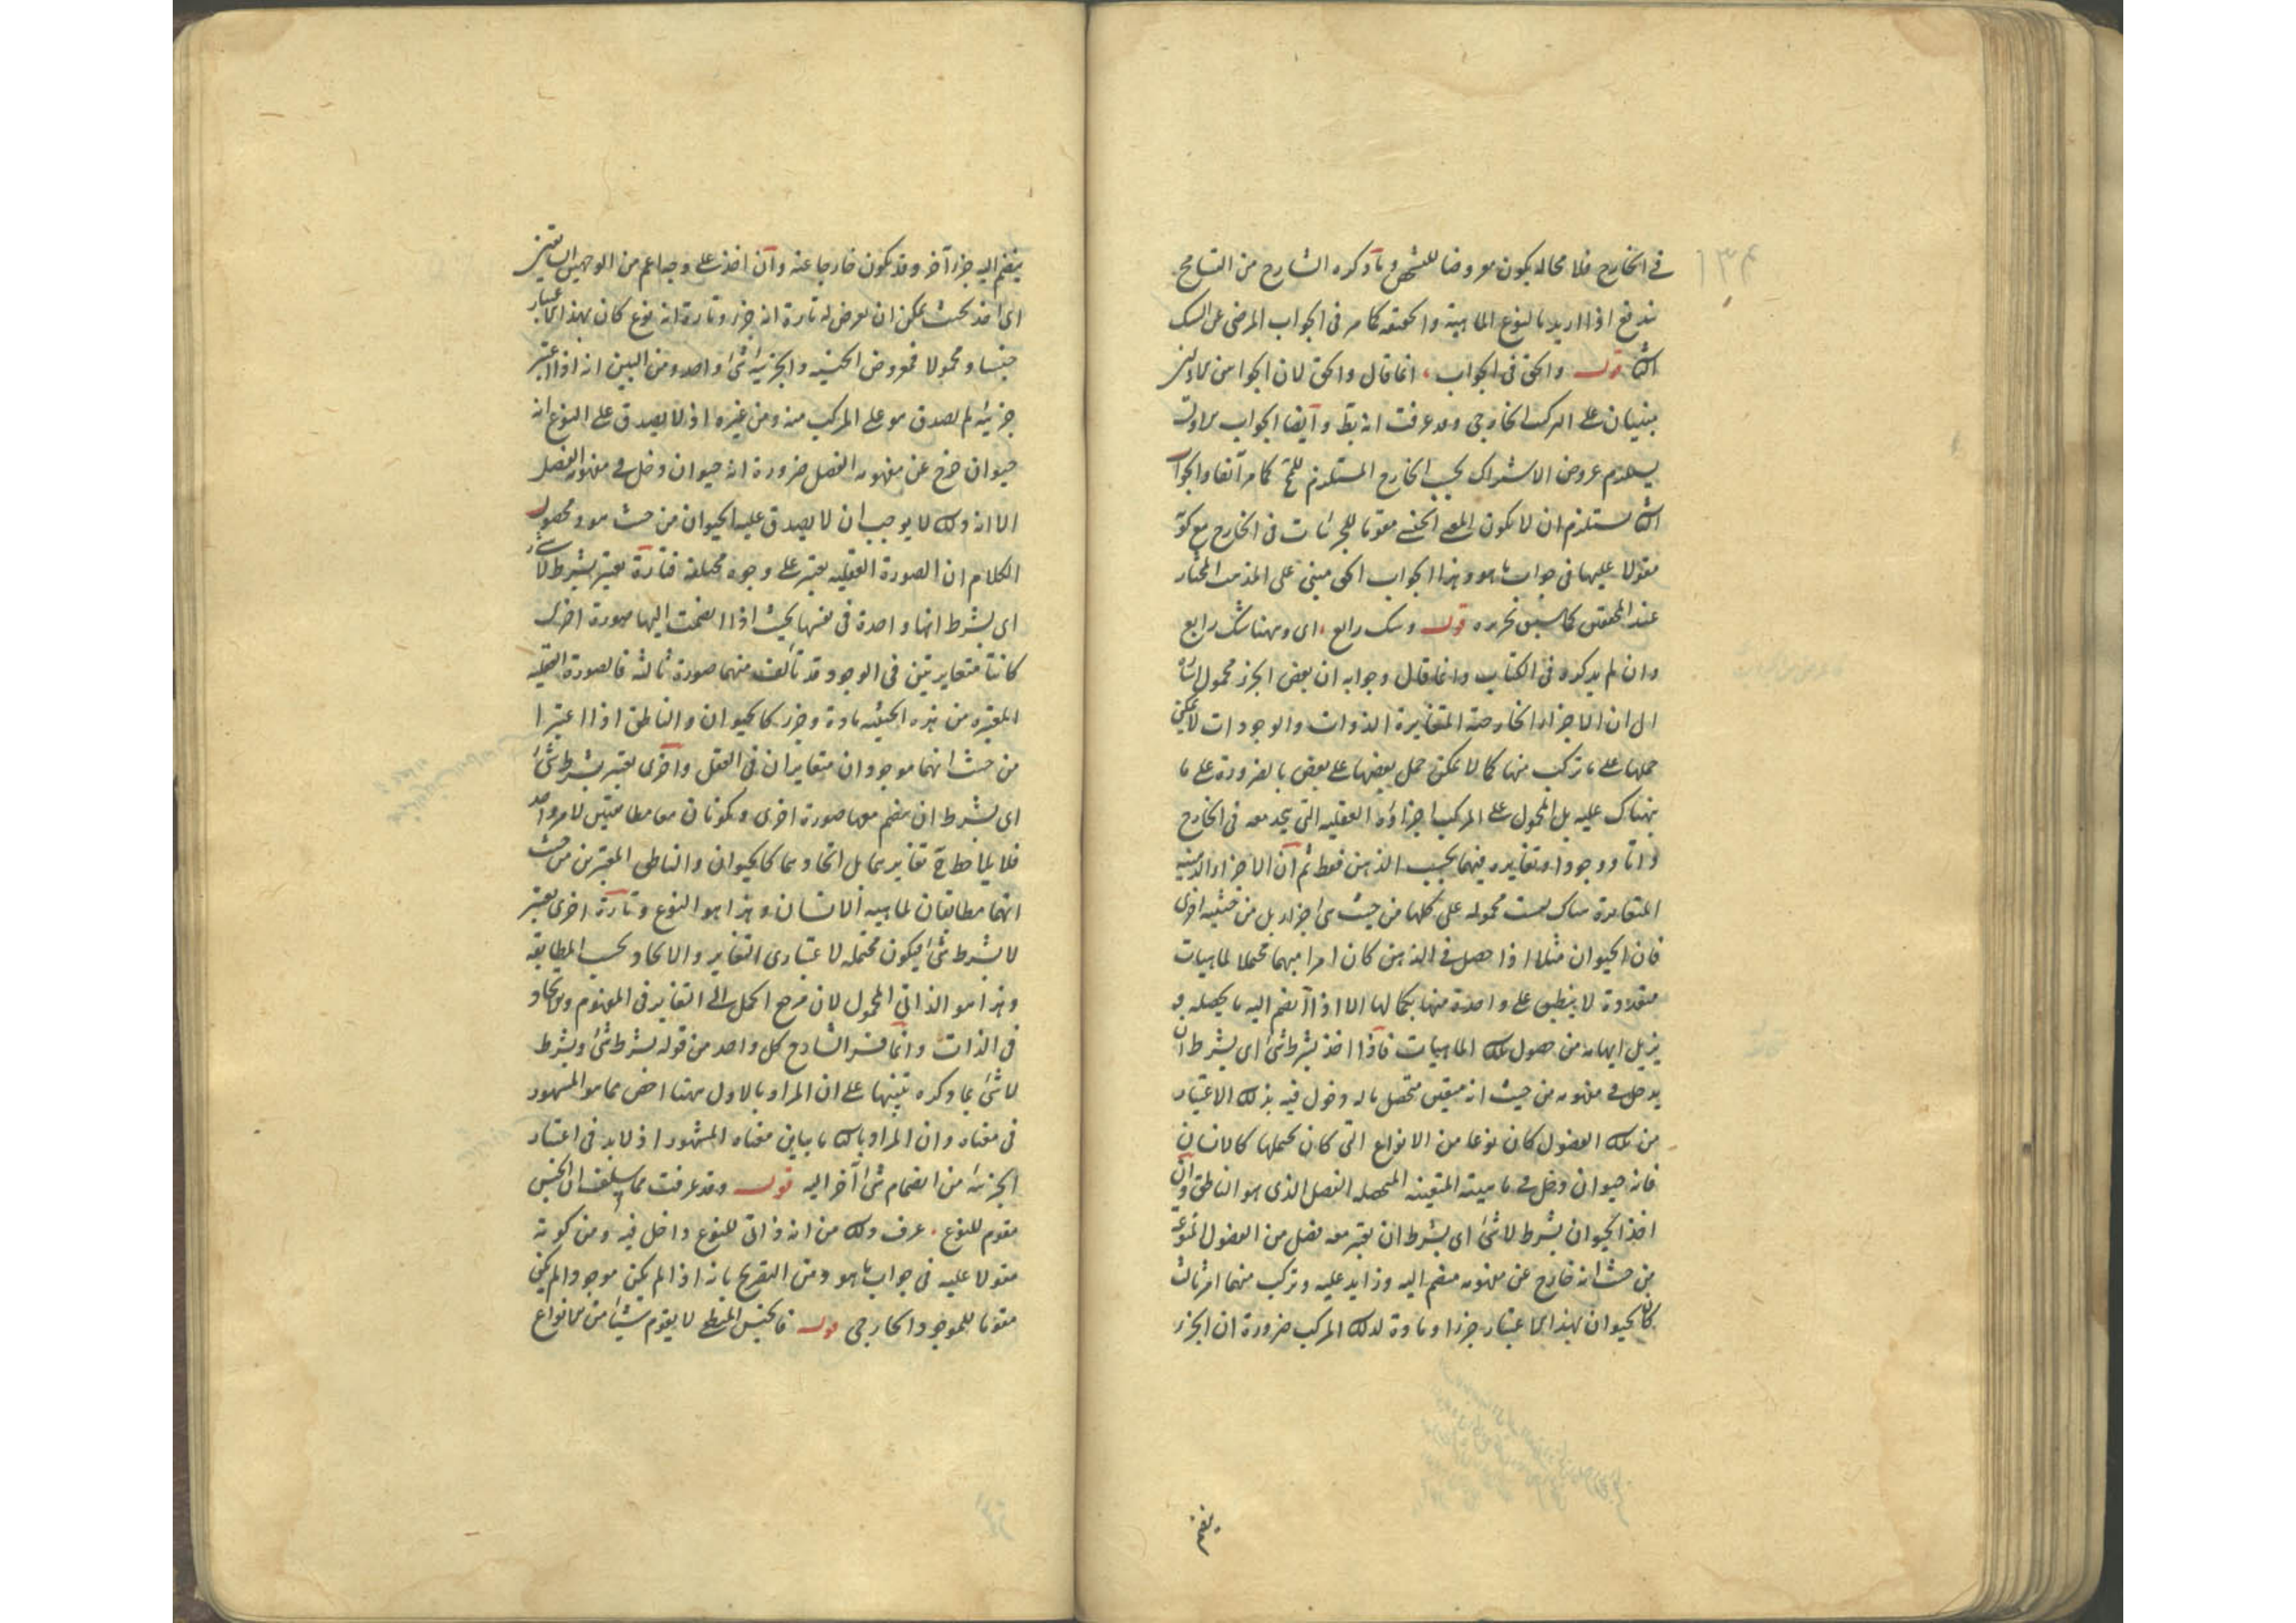 ١٣٤
في الخارج فلا محالة يكون معروضا للتشخص وما ذكره الشارح من التسامح
يندفع اذا اريد بالنوع الماهية والحقيقة كما مر في الجواب المرضي عن الشك
الثا قوله والحق في الجواب انما قال والحق لان الجوابين الاولين
مبنيان على التركيب الخارجي وقد عرفت انه بط وايضا الجواب الاول
يستلزم عروض الاشتراك بحسب الخارج المستلزم للمح كما مر آنفا والجواب
الثا يستلزم ان لا يكون الجنس مقوما للجزئيات في الخارج مع كونه
مقولا عليها في جواب ما هو وهذا الجواب الحق مبني على المذهب المختار
عند المحققين كما سبق تحريره قوله وشك رابع اى وههنا شك رابع
وان لم يذكره في الكتاب وانما قال وجوابه ان بعض الجزء محمول اشارة
الى ان الاجزاء الخارجية المتغايرة الذوات والوجودات لا يمكن
حملها على ما تركب منها كما لا يمكن حمل بعضها على بعض بالضرورة على ما
نبهناك عليه بل المحمول على المركب اجزاؤه العقلية التي يتحد معه في الخارج
ذاتا ووجودا وتغايره فيهما بحسب الذهن فقط ثم ان الاجزاء الذهنية
المتغايرة هناك ليست محمولة على كلها من حيث هى اجزاء بل من حيثية اخرى
فان الحيوان مثلا اذا حصل في الذهن كان امرا مبهما محتملا لماهيات
متعددة لا ينطبق على واحدة منها بكمالها الا اذا انضم اليه ما يحصله و
يزيل ابهامه من فصول تلك الماهيات فاذا اخذ بشرط شئ اى بشرط ان
يدخل في مفهومه من حيث انه متعين متحصل ماله دخول فيه بذلك الاعتبار
من تلك الفصول كان نوعا من الانواع التي كان يحتملها كالانسان
فانه حيوان دخل في ماهيته المتعينة المتحصلة الفصل الذى هو الناطق وان
اخذ الحيوان بشرط لا شئ اى بشرط ان يعتبر معه فصل من الفصول المنوعة
من حيث انه خارج عن مفهومه منضم اليه وزايد عليه وتركب منهما امر ثالث
كان الحيوان بهذا الاعتبار جزءا ومادة لذلك المركب ضرورة ان الجزء
ينضم
ينضم اليه جزء آخر وقد يكون خارجا عنه وان اخذ على وجه اعم من الوجهين السابقين
اى اخذ بحيث يمكن ان يعرض له تارة انه جزء وتارة انه نوع كان بهذا الاعتبار
جنسا ومحمولا فمعروض الجنسية والجزئية شئ واحد ومن البين انه اذا اعتبر
جزئيته لم يصدق هو على المركب منه ومن غيره اذ لا يصدق على النوع انه
حيوان خرج عن مفهومه الفصل ضرورة انه حيوان دخل في مفهومه الفصل
الا ان ذلك لا يوجب ان لا يصدق عليه الحيوان من حيث هو ومحصول
الكلام ان الصورة العقلية يعتبر على وجوه مختلفة فتارة يعتبر بشرط لا شئ
اى بشرط انها واحدة في نفسها بحيث اذا انضمت اليها صورة اخرى
كانتا متغايرتين في الوجود قد تألفت منهما صورة ثالثة فالصورة العقلية
المعتبرة من هذه الحيثية مادة وجزء كالحيوان والناطق اذا اعتبرا
من حيث انهما موجودان متغايران في العقل واخرى يعتبر بشرط شئ
اى بشرط ان ينضم معها صورة اخرى ويكونان معا مطابقتين لامر واحد
فلا يلاحظ ح تغايرهما بل اتحادهما كالحيوان والناطق المعتبرين من حيث
انهما مطابقان لماهية الانسان وهذا هو النوع وتارة اخرى يعتبر
لا بشرط شئ فيكون محتملة لاعتبارى التغاير والاتحاد بحسب المطابقة
وهذا هو الذاتي المحمول لان مرجع الحمل الى التغاير في المفهوم والاتحاد
في الذات وانما فسر الشارح كل واحد من قوله بشرط شئ وبشرط
لا شئ بما ذكره تنبيها على ان المراد بالاول ههنا اخص مما هو المشهور
في معناه وان المراد بالثا ما يباين معناه المشهور اذ لابد في اعتبار
الجزئية من انضمام شئ آخر اليه قوله وقد عرفت مما سلف ان الجنس
مقوم للنوع عرف ذلك من انه ذاتي للنوع داخل فيه ومن كونه
مقولا عليه في جواب ما هو ومن التصريح بانه اذا لم يكن موجودا لم يكن
مقوما للموجود الخارجى قوله فالجنس المنطقي لا يقوم شيئا من الانواع